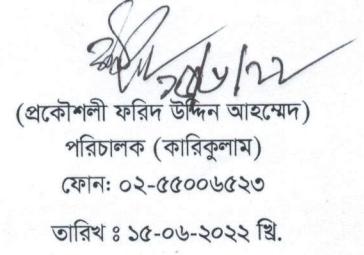 ১৫/৬/২২
(প্রকৌশলী ফরিদ উদ্দিন আহম্মেদ)
পরিচালক (কারিকুলাম)
ফোন: ০২-৫৫০০৬৫২৩
তারিখ ঃ ১৫-০৬-২০২২ খ্রি.